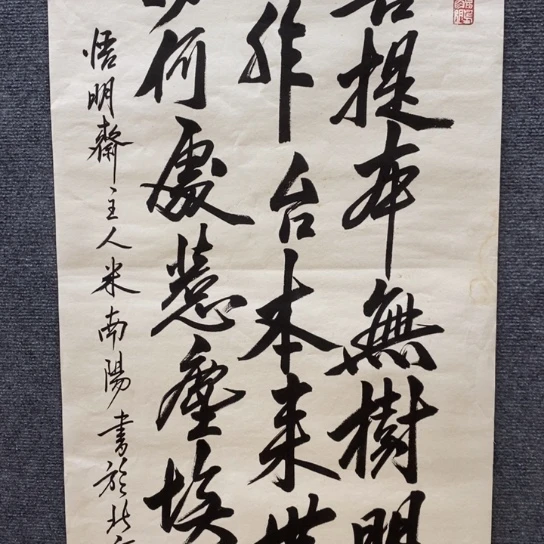 菩提本無樹明
非台本来無
物何處惹塵埃
悟明齋主人米南陽書於北